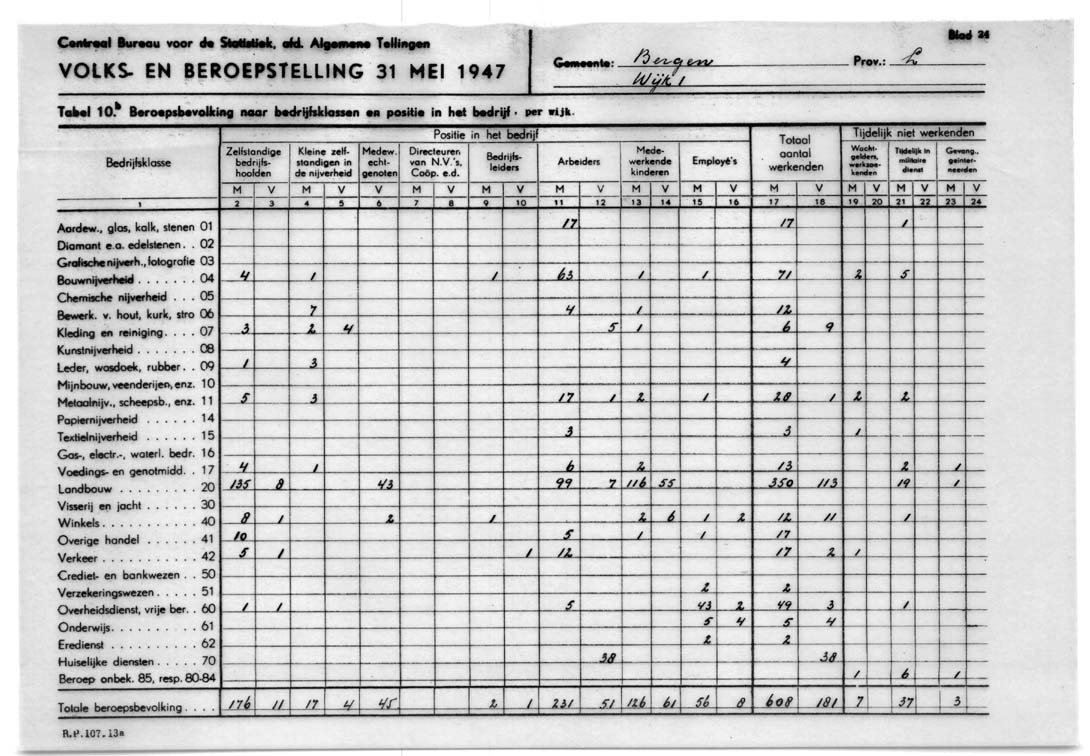 Blad 24
Centraal Bureau voor de Statistiek, afd. Algemene Tellingen
VOLKS- EN BEROEPSTELLING 31 MEI 1947
Gemeente: Bergen Prov.: L
Wijk 1
Tabel 10.b Beroepsbevolking naar bedrijfsklassen en positie in het bedrijf, per wijk.
Positie in het bedrijf
Bedrijfsklasse
Zelfstandige bedrijfs-hoofden
Kleine zelf-standigen in de nijverheid
Medew. echt-genoten
Directeuren van N.V.'s, Coöp. e.d.
Bedrijfs-leiders
Arbeiders
Mede-werkende kinderen
Employé's
Totaal aantal werkenden
Tijdelijk niet werkenden
Wacht-gelders, werkzoe-kenden
Tijdelijk in militaire dienst
Gevang., geïnter-neerden
M V M V V M V M V M V M V M V M V M V M V M V
1 2 3 4 5 6 7 8 9 10 11 12 13 14 15 16 17 18 19 20 21 22 23 24
Aardew., glas, kalk, stenen 01 17 17 1
Diamant e.a. edelstenen. . 02
Grafische nijverh., fotografie 03
Bouwnijverheid . . . . . . . 04 4 1 1 63 1 1 71 2 5
Chemische nijverheid . . . 05
Bewerk. v. hout, kurk, stro 06 7 4 1 12
Kleding en reiniging. . . . 07 3 2 4 5 1 6 9
Kunstnijverheid . . . . . . . 08
Leder, wasdoek, rubber. . 09 1 3 4
Mijnbouw, veenderijen, enz. 10
Metaalnijv., scheepsb., enz. 11 5 3 17 1 2 1 28 1 2 2
Papiernijverheid . . . . . . 14
Textielnijverheid . . . . . . 15 3 3 1
Gas-, electr.-, waterl. bedr. 16
Voedings- en genotmidd. . 17 4 1 6 2 13 2 1
Landbouw . . . . . . . . . 20 135 8 43 99 7 116 55 350 113 19 1
Visserij en jacht . . . . . . 30
Winkels . . . . . . . . . . . 40 8 1 2 1 2 6 1 2 12 11 1
Overige handel . . . . . . 41 10 5 1 1 17
Verkeer . . . . . . . . . . . 42 5 1 1 12 17 2 1
Crediet- en bankwezen . . 50
Verzekeringswezen . . . . . 51 2 2
Overheidsdienst, vrije ber. . 60 1 1 5 43 2 49 3 1
Onderwijs. . . . . . . . . . 61 5 4 5 4
Eredienst . . . . . . . . . . 62 2 2
Huiselijke diensten . . . . . 70 38 38
Beroep onbek. 85, resp. 80-84 1 6 1
Totale beroepsbevolking . . . . 176 11 17 4 45 2 1 231 51 126 61 56 8 608 181 7 37 3
R.P.107.13a